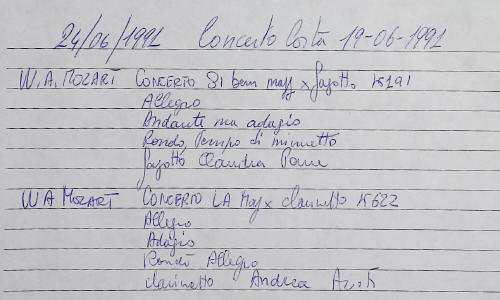 24/06/1992 Concerto Costa 19-06-1992
W.A. MOZART CONCERTO SI bem magg x fagotto K191
Allegro
Andante ma adagio
Rondò Tempo di minuetto
fagotto Claudia
W A MOZART CONCERTO LA Mag x clarinetto K622
Allegro
Adagio
Rondò Allegro
clarinetto Andrea